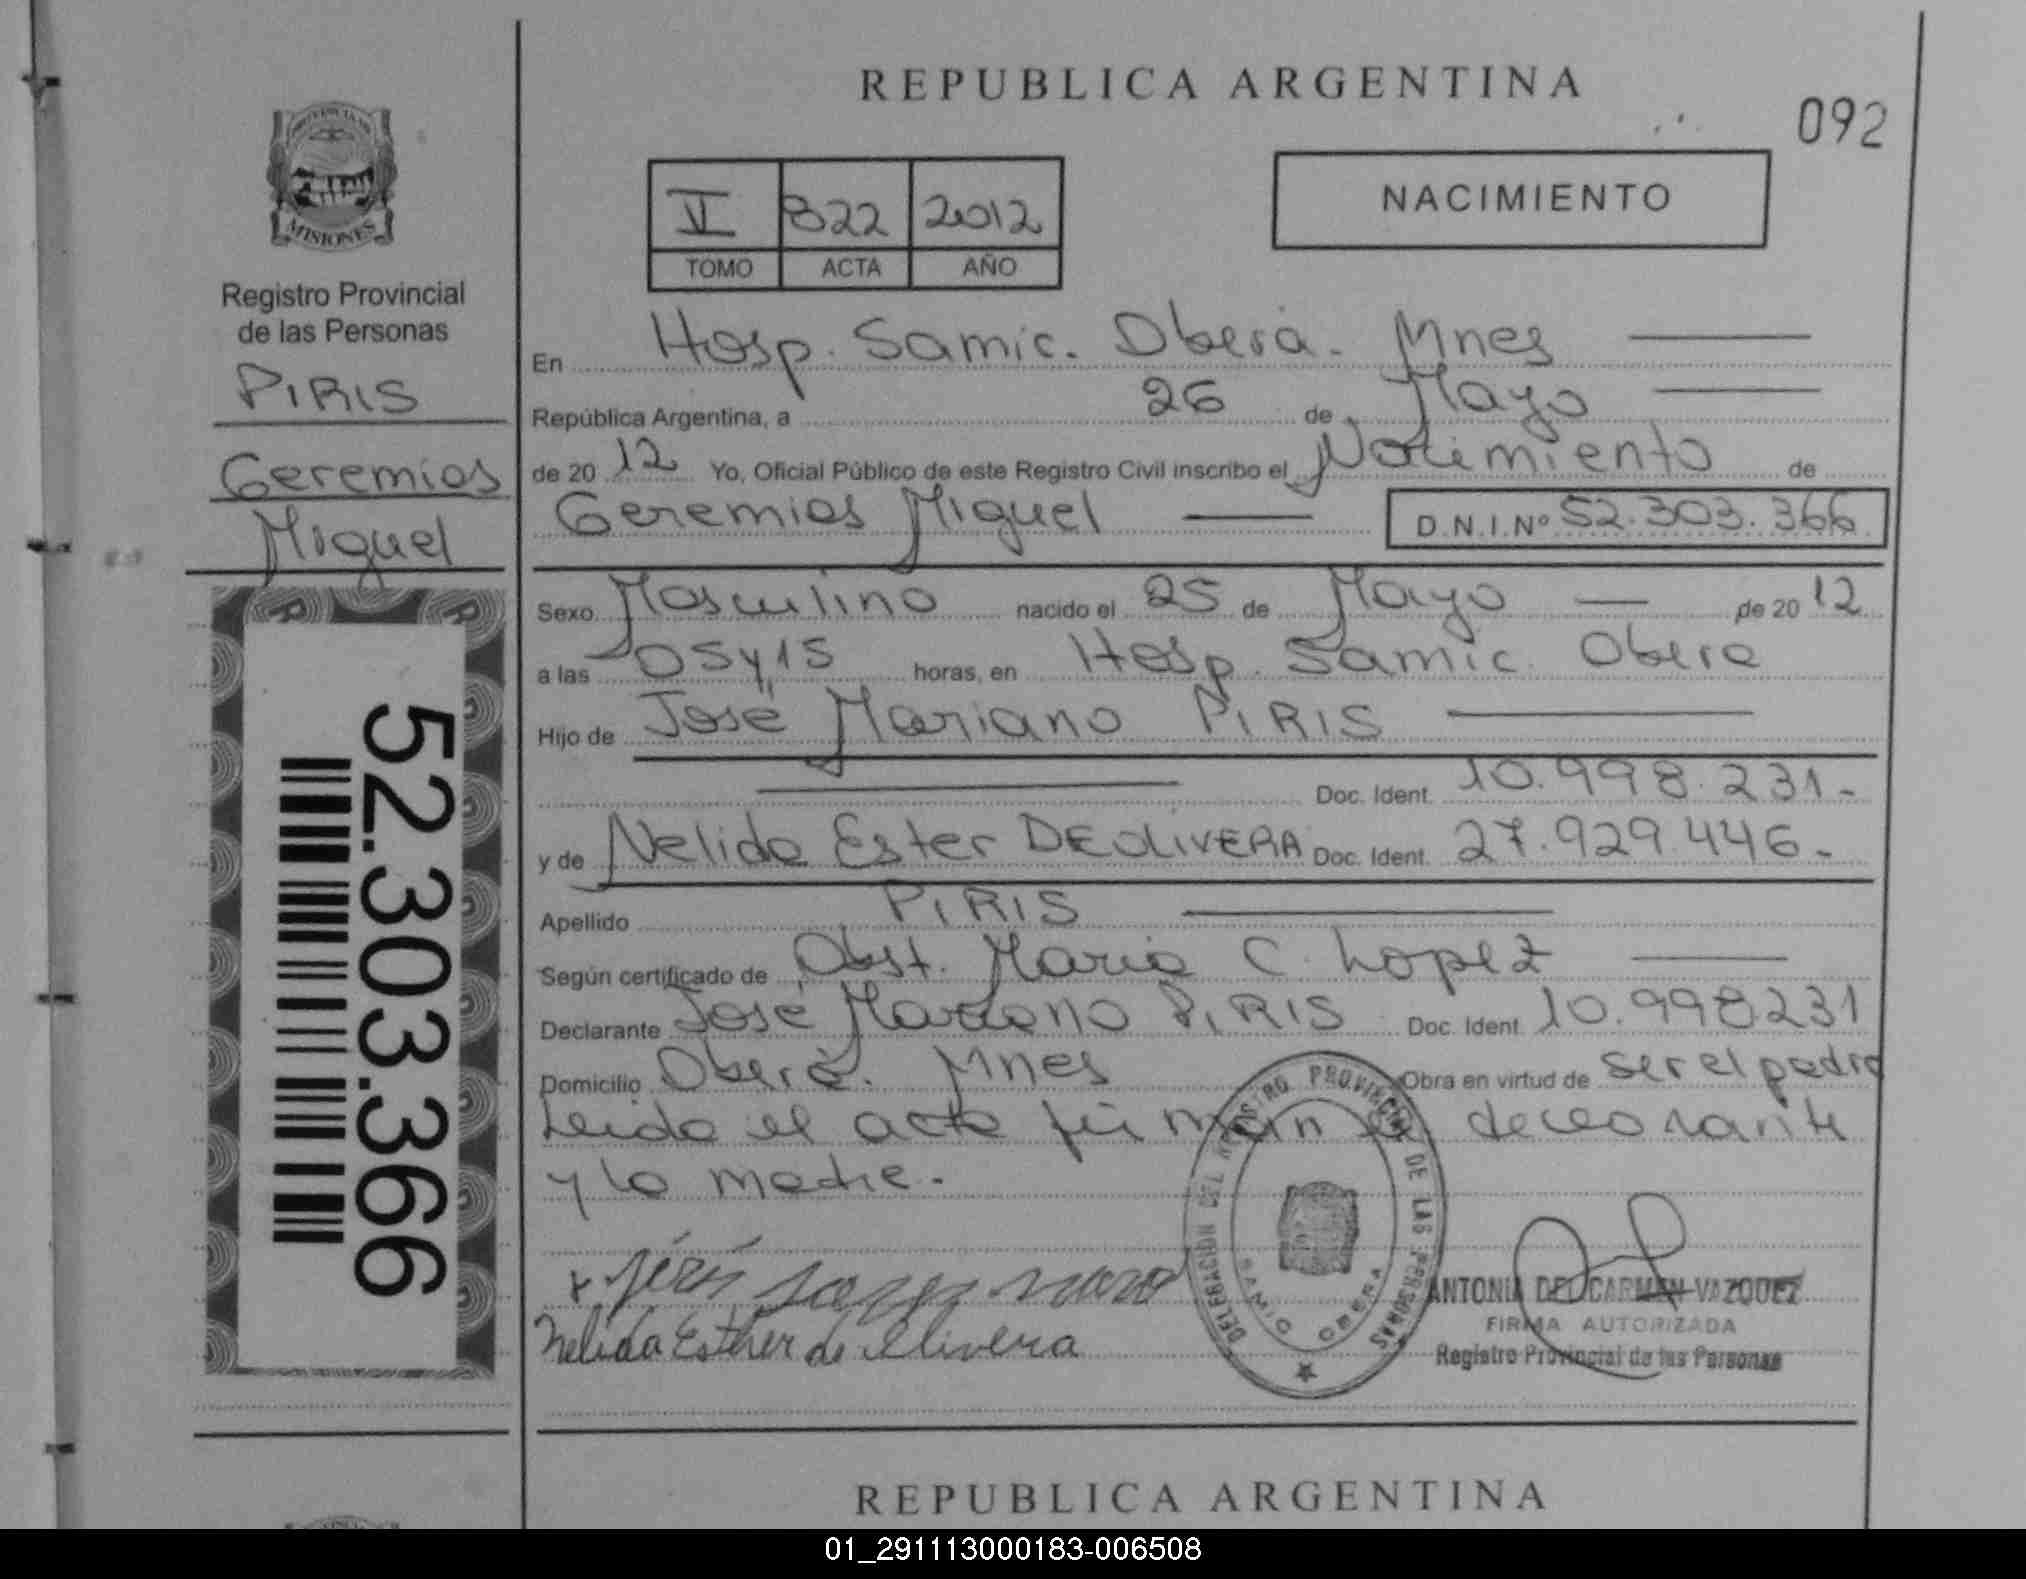 REPUBLICA ARGENTINA
092
PROVINCIA DE
MISIONES
Registro Provincial
de las Personas
PIRIS
Geremias
Miguel
52.303.366
822 2012
TOMO ACTA AÑO
NACIMIENTO
En Hosp. Samic. Oberá. Mnes
República Argentina, a 26 de Mayo
de 20 12 Yo, Oficial Público de este Registro Civil inscribo el Nacimiento de
Geremias Miguel D.N.I.Nº 52.303.366
Sexo Masculino nacido el 25 de Mayo de 20 12
a las 05 y 15 horas, en Hosp. Samic. Obera
Hijo de José Mariano PIRIS
Doc. Ident. 10.998.231-
y de Nelida Ester DE OLIVERA Doc. Ident. 27.929.446-
Apellido PIRIS
Según certificado de Obst. Maria C. Lopez
Declarante José Mariano PIRIS Doc. Ident. 10.998231
Domicilio Oberá. Mnes Obra en virtud de ser el padre
Leida el acta firman el declarante
y la madre.
Nelida Esther de Olivera
DELEGACION DEL REGISTRO PROVINCIAL DE LAS PERSONAS
SAMIC OBERA
ANTONIA DEL CARMEN VAZQUEZ
FIRMA AUTORIZADA
Registro Provincial de las Personas
REPUBLICA ARGENTINA
01_291113000183-006508